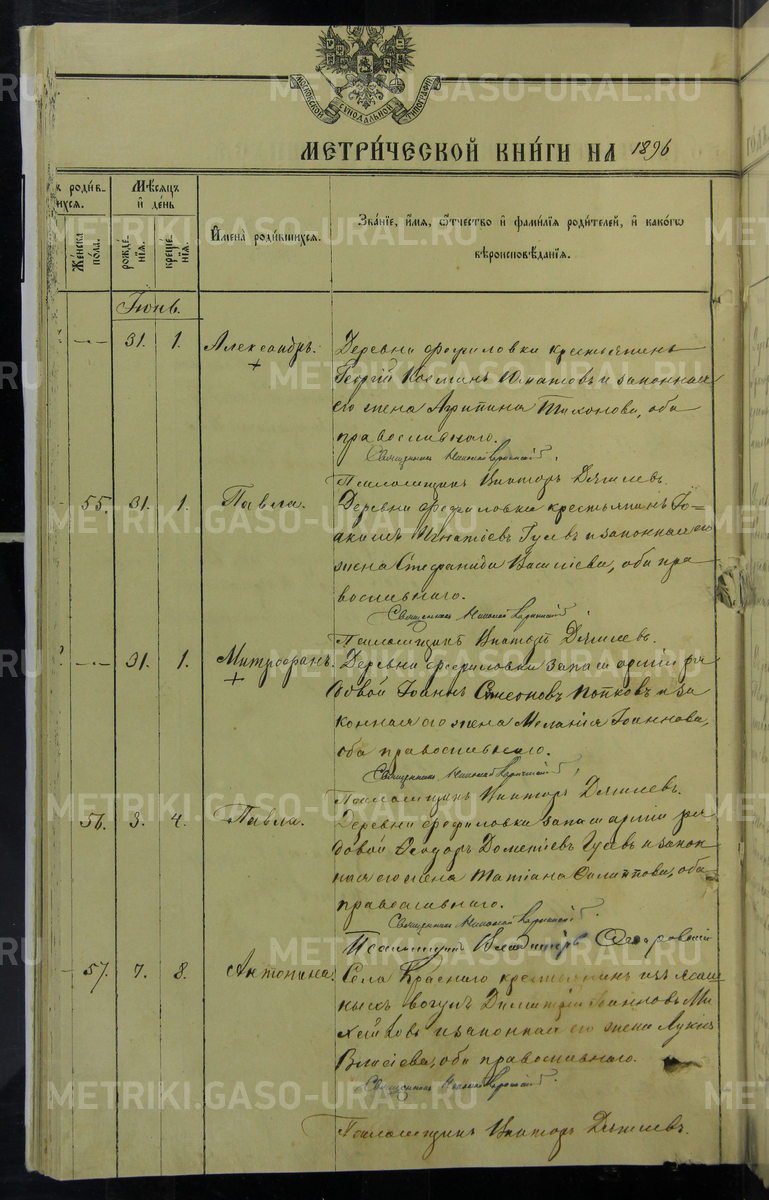 МОСКОВСКОЙ СѴНОДАЛЬНОЙ ТИПОГРАФІИ
МЕТРИ́ЧЕСКОЙ КНИ́ГИ НА 1896
роди́в-
ихсѧ.
Мѣ́сѧцъ
и҆ де́нь
Же́нска по́ла.
рожде́нїѧ.
креще́нїѧ.
И҆мена̀ роди́вшихсѧ.
Зва́нїе, и҆́мѧ, ѻ҆́тчество и҆ фами́лїѧ роди́телей, и҆ како́гѡ
вѣроисповѣ́данїѧ.
Іюнь.
31. 1. Александръ. Деревни Фефиловки крестьянинъ
+
Георгій Косминъ и законная
его жена Агрипина Тихонова, оба
православнаго.
Священникъ Николай
Псаломщикъ Викторъ Дягилевъ.
55. 31. 1. Павла. Деревни Фефиловки крестьянинъ Іо-
акимъ Игнатіевъ Гусевъ и законная его
жена Стефанида Василіева, оба пра-
вославнаго.
Священникъ Николай
Псаломщикъ Викторъ Дягилевъ.
31. 1. Митрофанъ. Деревни Фефиловки запаса арміи ря
+
довой Іоаннъ Симеоновъ Попковъ и за
конная его жена Меланія Іоаннова,
оба православнаго.
Священникъ Николай
Псаломщикъ Викторъ Дягилевъ.
56. 3. 4. Павла. Деревни Фефиловки запаса арміи ря
довой Ѳеодоръ Дометіевъ Гусевъ и закон
ная его жена Татіана Филиппова, оба
православнаго.
Священникъ Николай
Псаломщикъ Владиміръ
57. 7. 8. Антонина. Села Краснаго крестьянинъ изъ ясаш
ныхъ вогулъ Димитрій Іоанновъ Ми
хейковъ и законная его жена Лукія
Власіева, оба православнаго.
Священникъ Николай
Псаломщикъ Викторъ Дягилевъ.
METRIKI.GASO-URAL.RU